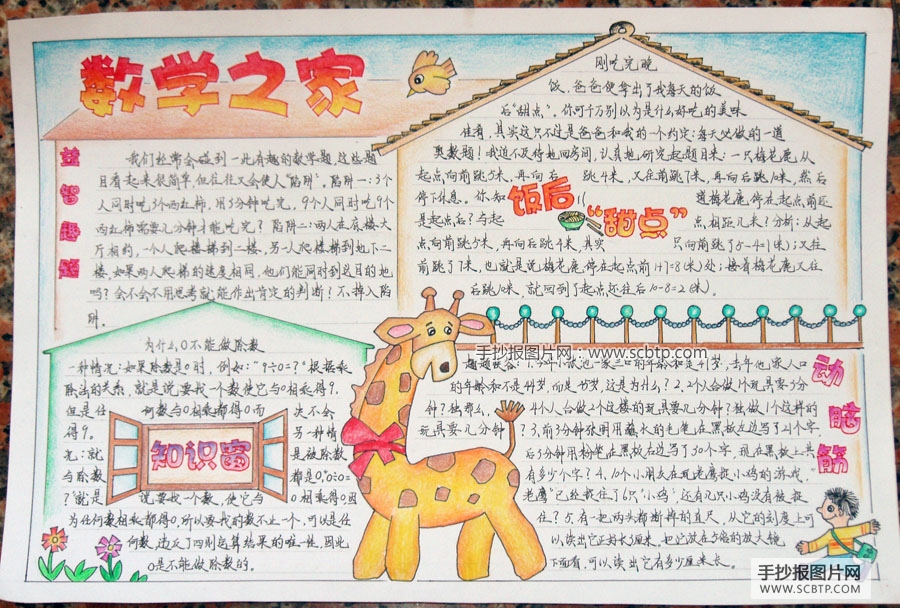 数学之家
益智趣题
我们经常会碰到一些有趣的数学题,这些题
目看起来很简单,但往往又会使人“陷阱”。陷阱一:3个
人同时吃3个西红柿,用3分钟吃完,9个人同时吃9个
西红柿需要几分钟才能吃完?陷阱二:两人在底楼大
厅相约,一个人爬楼梯到二楼,另一人爬楼梯到地下二
楼,如果两人爬梯的速度相同,他们能同时到达目的地
吗?会不会不用思考就能作出肯定的判断?不,掉入陷
阱。
刚吃完晚
饭,爸爸便拿出了我每天的饭
后“甜点”。你可千万别以为是什么好吃的美味
佳肴,其实这只不过是爸爸和我的一个约定:每天父做的一道
奥数题!我迫不及待地回房间,认真地研究起题目来:一只梅花鹿从
起点向前跳5米,再向后跳4米,又往前跳7米,再向后跳10米,然后
停下休息。你知道梅花鹿停在起点前还
是起点后?与起点相距几米?分析:从起
点向前跳5米,再向后跳4米,其实只向前跳了5-4=1(米);又往
前跳了7米,也就是说梅花鹿停在起点前1+7=8(米)处;接着梅花鹿又往
后跳10米,就回到了起点还往后10-8=2(米)。
饭后
“甜点”
为什么0不能做除数
一种情况:如果除数是0时,例如:“9÷0=?”根据乘
除法的关系,就是说要找一个数使它与0相乘得9。
但是任何数与0相乘都得0而决不会
得9。另一种情
况:就是被除数
与除数都是0,“0÷0=
?”就是说要找一个数,使它与0相乘得0,因
为任何数相乘都得0,所以要找的数不止一个,可以是任
何数,违反了四则运算结果的唯一性,因此
0是不能做除数的。
知识窗
手抄报图片网:www.scbtp.com
动脑筋
趣题快答:1.小张一家三口的年龄和是41岁,去年他家人口
的年龄和不是44岁,而是45岁,这是为什么?2.2个人合做1个玩具要3分
钟?独那么,4个人合做2个这样的玩具要几分钟?独做1个这样的
玩具要几分钟?3.前3分钟张明用蘸水的毛笔,在黑板左边写了21个字,
后3分钟用粉笔在黑板右边写了30个字,现在黑板上共
有多少个字?4.10个小朋友在玩老鹰捉小鸡的游戏,
“老鹰”已经抓住了6只“小鸡”,还有几只小鸡没有被捉
住?5.有一把两头都断掉的直尺,从它的刻度上可
以读出它正好长5厘米,把它放在5倍的放大镜
下面看,可以读出它有多少厘米长。
手抄报图片网
WWW.SCBTP.COM